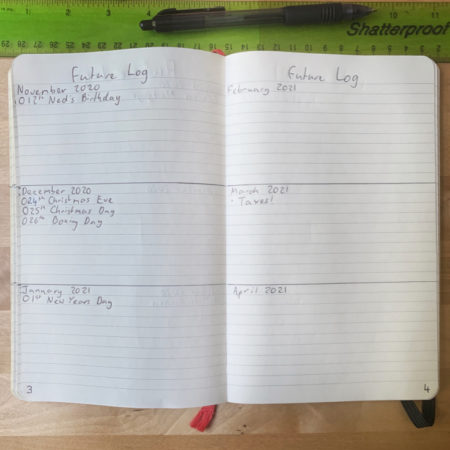 Shatterproof
Future Log
November 2020
O 12th Ned's Birthday
December 2020
O 24th Christmas Eve
O 25th Christmas Day
O 26th Boxing Day
January 2021
O 1st New Years Day
3
Future Log
February 2021
March 2021
· Taxes!
April 2021
4